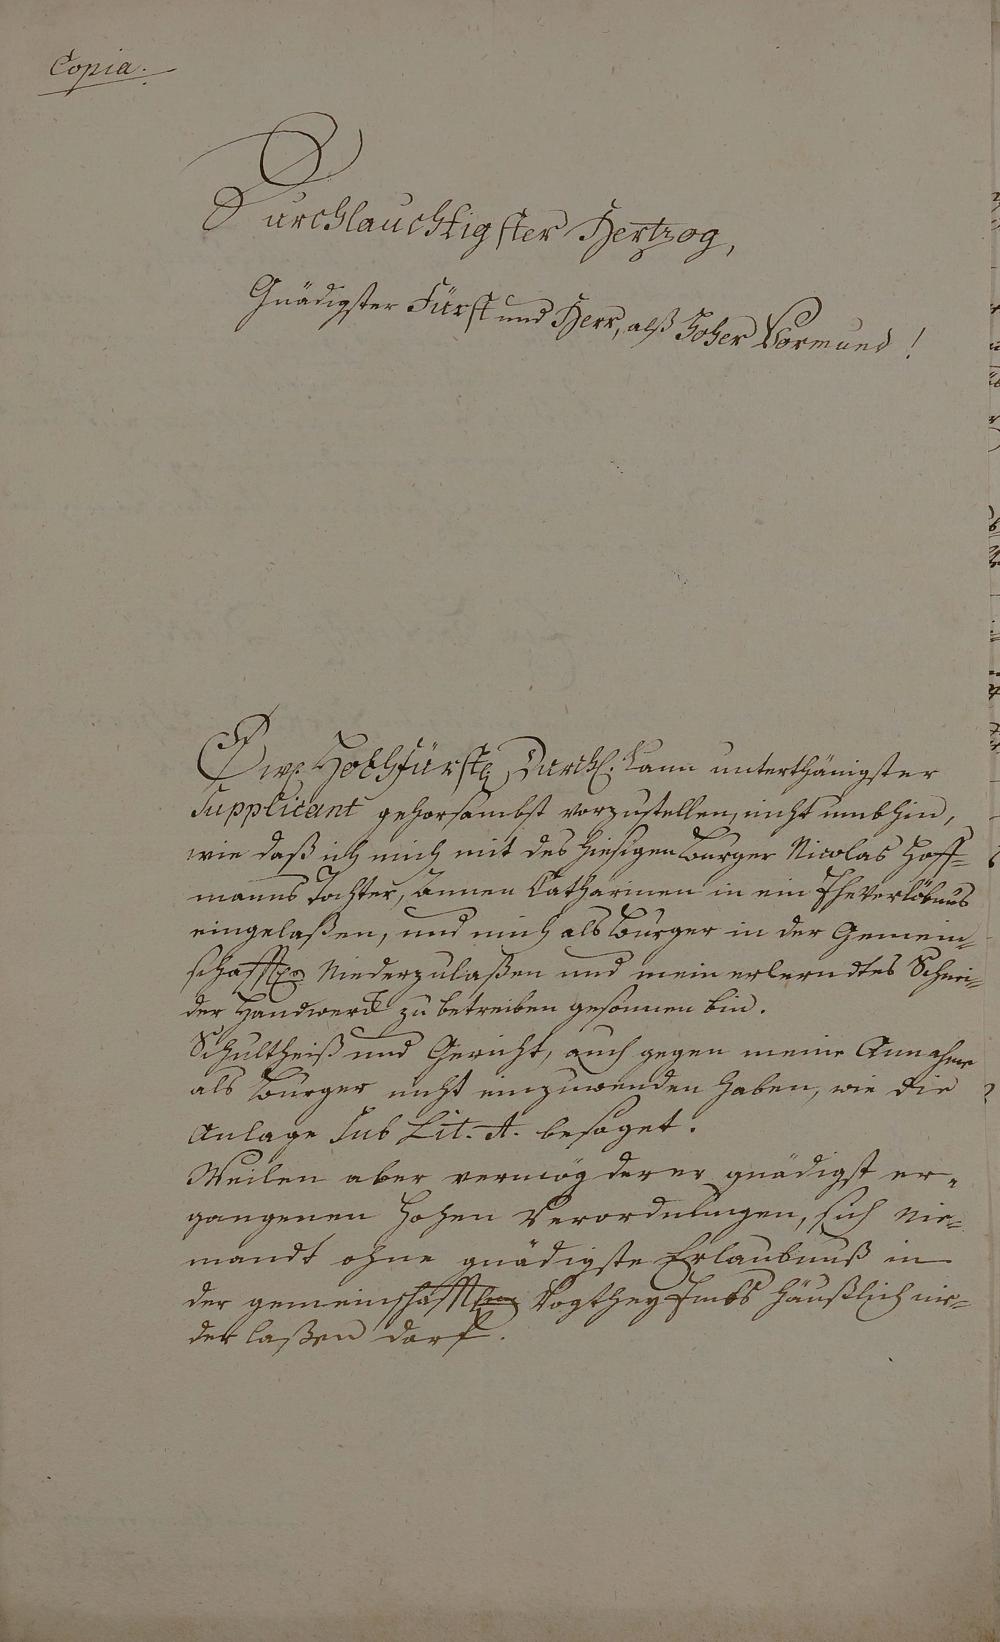 Copia.
Durchlauchtigster Hertzog,
Gnädigster Fürst und Herr, alß hoher Vormund!
Ew. Hochfürstl. Durchl. kann unterthänigster
Supplicant gehorsambst vorzustellen, nicht umbhin,
wie daß ich mich mit des hiesigen Burger Nicolas Hoff=
manns Tochter, Annen Catharinen in ein Eheverlöbnus
eingelaßen, und mich als Burger in der Gemein=
schafftl. Niederzulaßen und mein erlerndtes Schnei=
der Handwerck zu betreiben gesonnen bin.
Schultheiß und Gericht, auch gegen meine Annahme
als Burger nicht einzuwenden haben, wie die
Anlage sub Lit. A. besaget.
Weilen aber vermög derer gnädigst er=
gangenen hohen Verordnungen, sich nie=
mandt ohne gnädigste Erlaubnuß in
der gemeinschafftl. Vogthey häußlich nie=
der laßen darf.